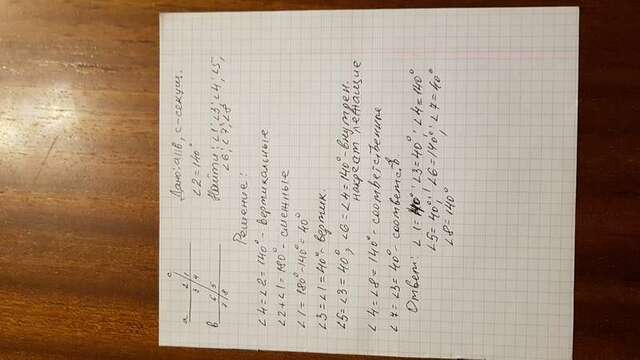 a
c
2 1
3 4
b
6 5
7 8
Дано: a||b, c-секущ.
∠2=140°
Найти: ∠1; ∠3; ∠4; ∠5;
∠6; ∠7; ∠8
Решение:
∠4=∠2=140°- вертикальные
∠2+∠1=180°- смежные
∠1=180°-140°=40°
∠3=∠1=40°- вертик.
∠5=∠3=40°; ∠6=∠4=140°- внутрен.
накрест лежащие
∠4=∠8=140°- соответственные
∠7=∠3=40°- соответств
Ответ: ∠1= 40°; ∠3=40°; ∠4=140°
∠5=40°; ∠6=140°; ∠7=40°
∠8=140°